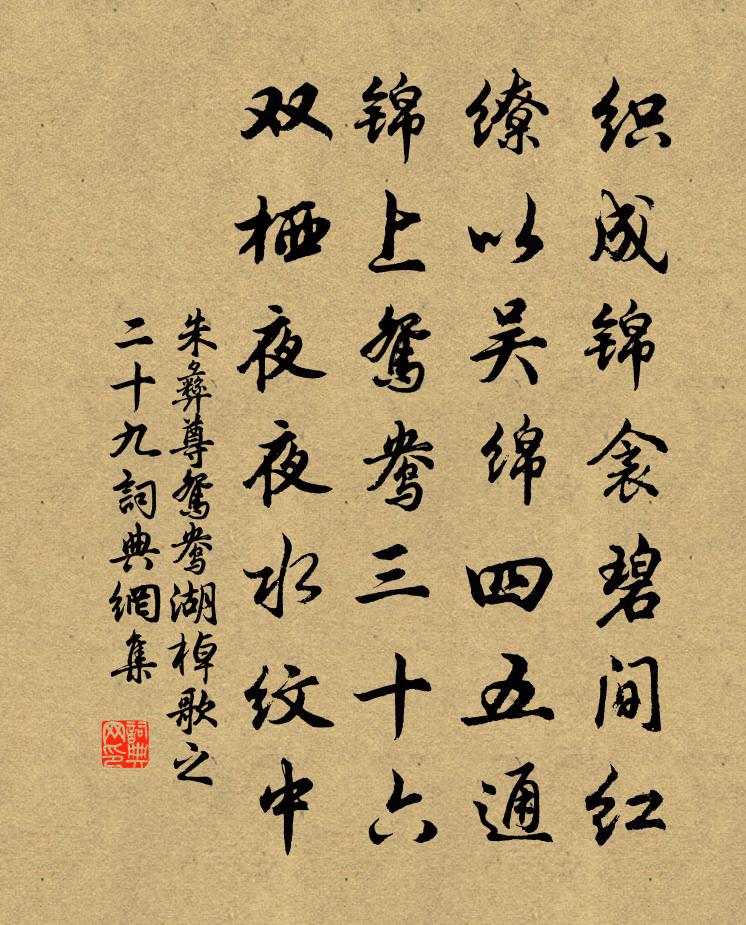 织成锦衾碧间红
缭以吴绵四五通
锦上鸳鸯三十六
双栖夜夜水纹中
朱彝尊鸳鸯湖棹歌之
二十九詞典網集
詞典网印